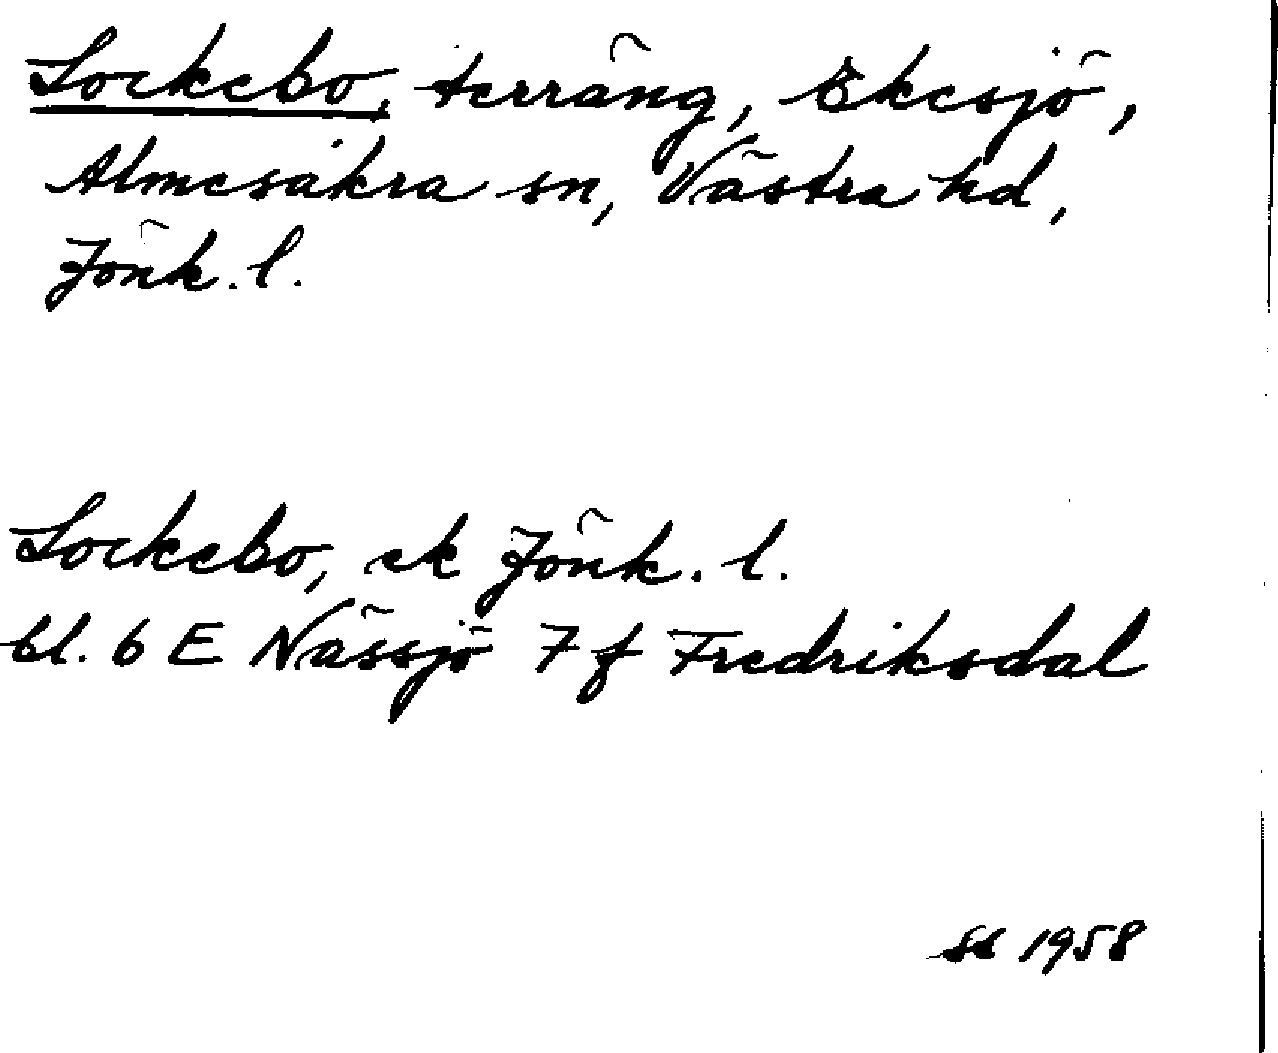 Lockebo, terräng, Eksjö,
Almesåkra sn, Västra hd,
Jönk. l.
Lockebo, ek Jönk. l.
bl. 6 E Nässjö 7 f Fredriksdal
1958